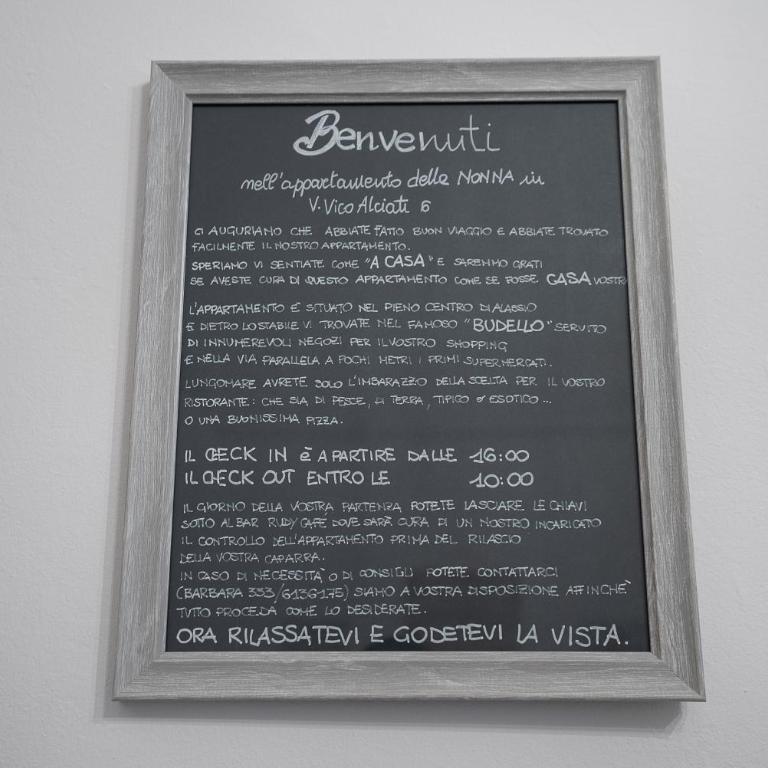 Benvenuti
nell'appartamento della NONNA in
V. Vico Alciati 6
CI AUGURIAMO CHE ABBIATE FATTO BUON VIAGGIO E ABBIATE TROVATO
FACILMENTE IL NOSTRO APPARTAMENTO.
SPERIAMO VI SENTIATE COME "A CASA" E SAREMMO GRATI
SE AVESTE CURA DI QUESTO APPARTAMENTO COME SE FOSSE CASA VOSTRA
L'APPARTAMENTO E' SITUATO NEL PIENO CENTRO DI ALASSIO
E DIETRO LO STABILE VI TROVATE NEL FAMOSO "BUDELLO" SERVITO
DI INNUMEREVOLI NEGOZI PER IL VOSTRO SHOPPING
E NELLA VIA PARALLELA A POCHI METRI I PRIMI SUPERMERCATI.
LUNGOMARE AVRETE SOLO L'IMBARAZZO DELLA SCELTA PER IL VOSTRO
RISTORANTE: CHE SIA DI PESCE, DI TERRA, TIPICO O ESOTICO...
O UNA BUONISSIMA PIZZA.
IL CHECK IN è A PARTIRE DALLE 16:00
IL CHECK OUT ENTRO LE 10:00
IL GIORNO DELLA VOSTRA PARTENZA POTETE LASCIARE LE CHIAVI
SOTTO AL BAR RUDY CAFÉ DOVE SARÀ CURA DI UN NOSTRO INCARICATO
IL CONTROLLO DELL'APPARTAMENTO PRIMA DEL RILASCIO
DELLA VOSTRA CAPARRA.
IN CASO DI NECESSITÀ O DI CONSIGLI POTETE CONTATTARCI
(BARBARA 333/6136175) SIAMO A VOSTRA DISPOSIZIONE AFFINCHÈ
TUTTO PROCEDA COME LO DESIDERATE.
ORA RILASSATEVI E GODETEVI LA VISTA.